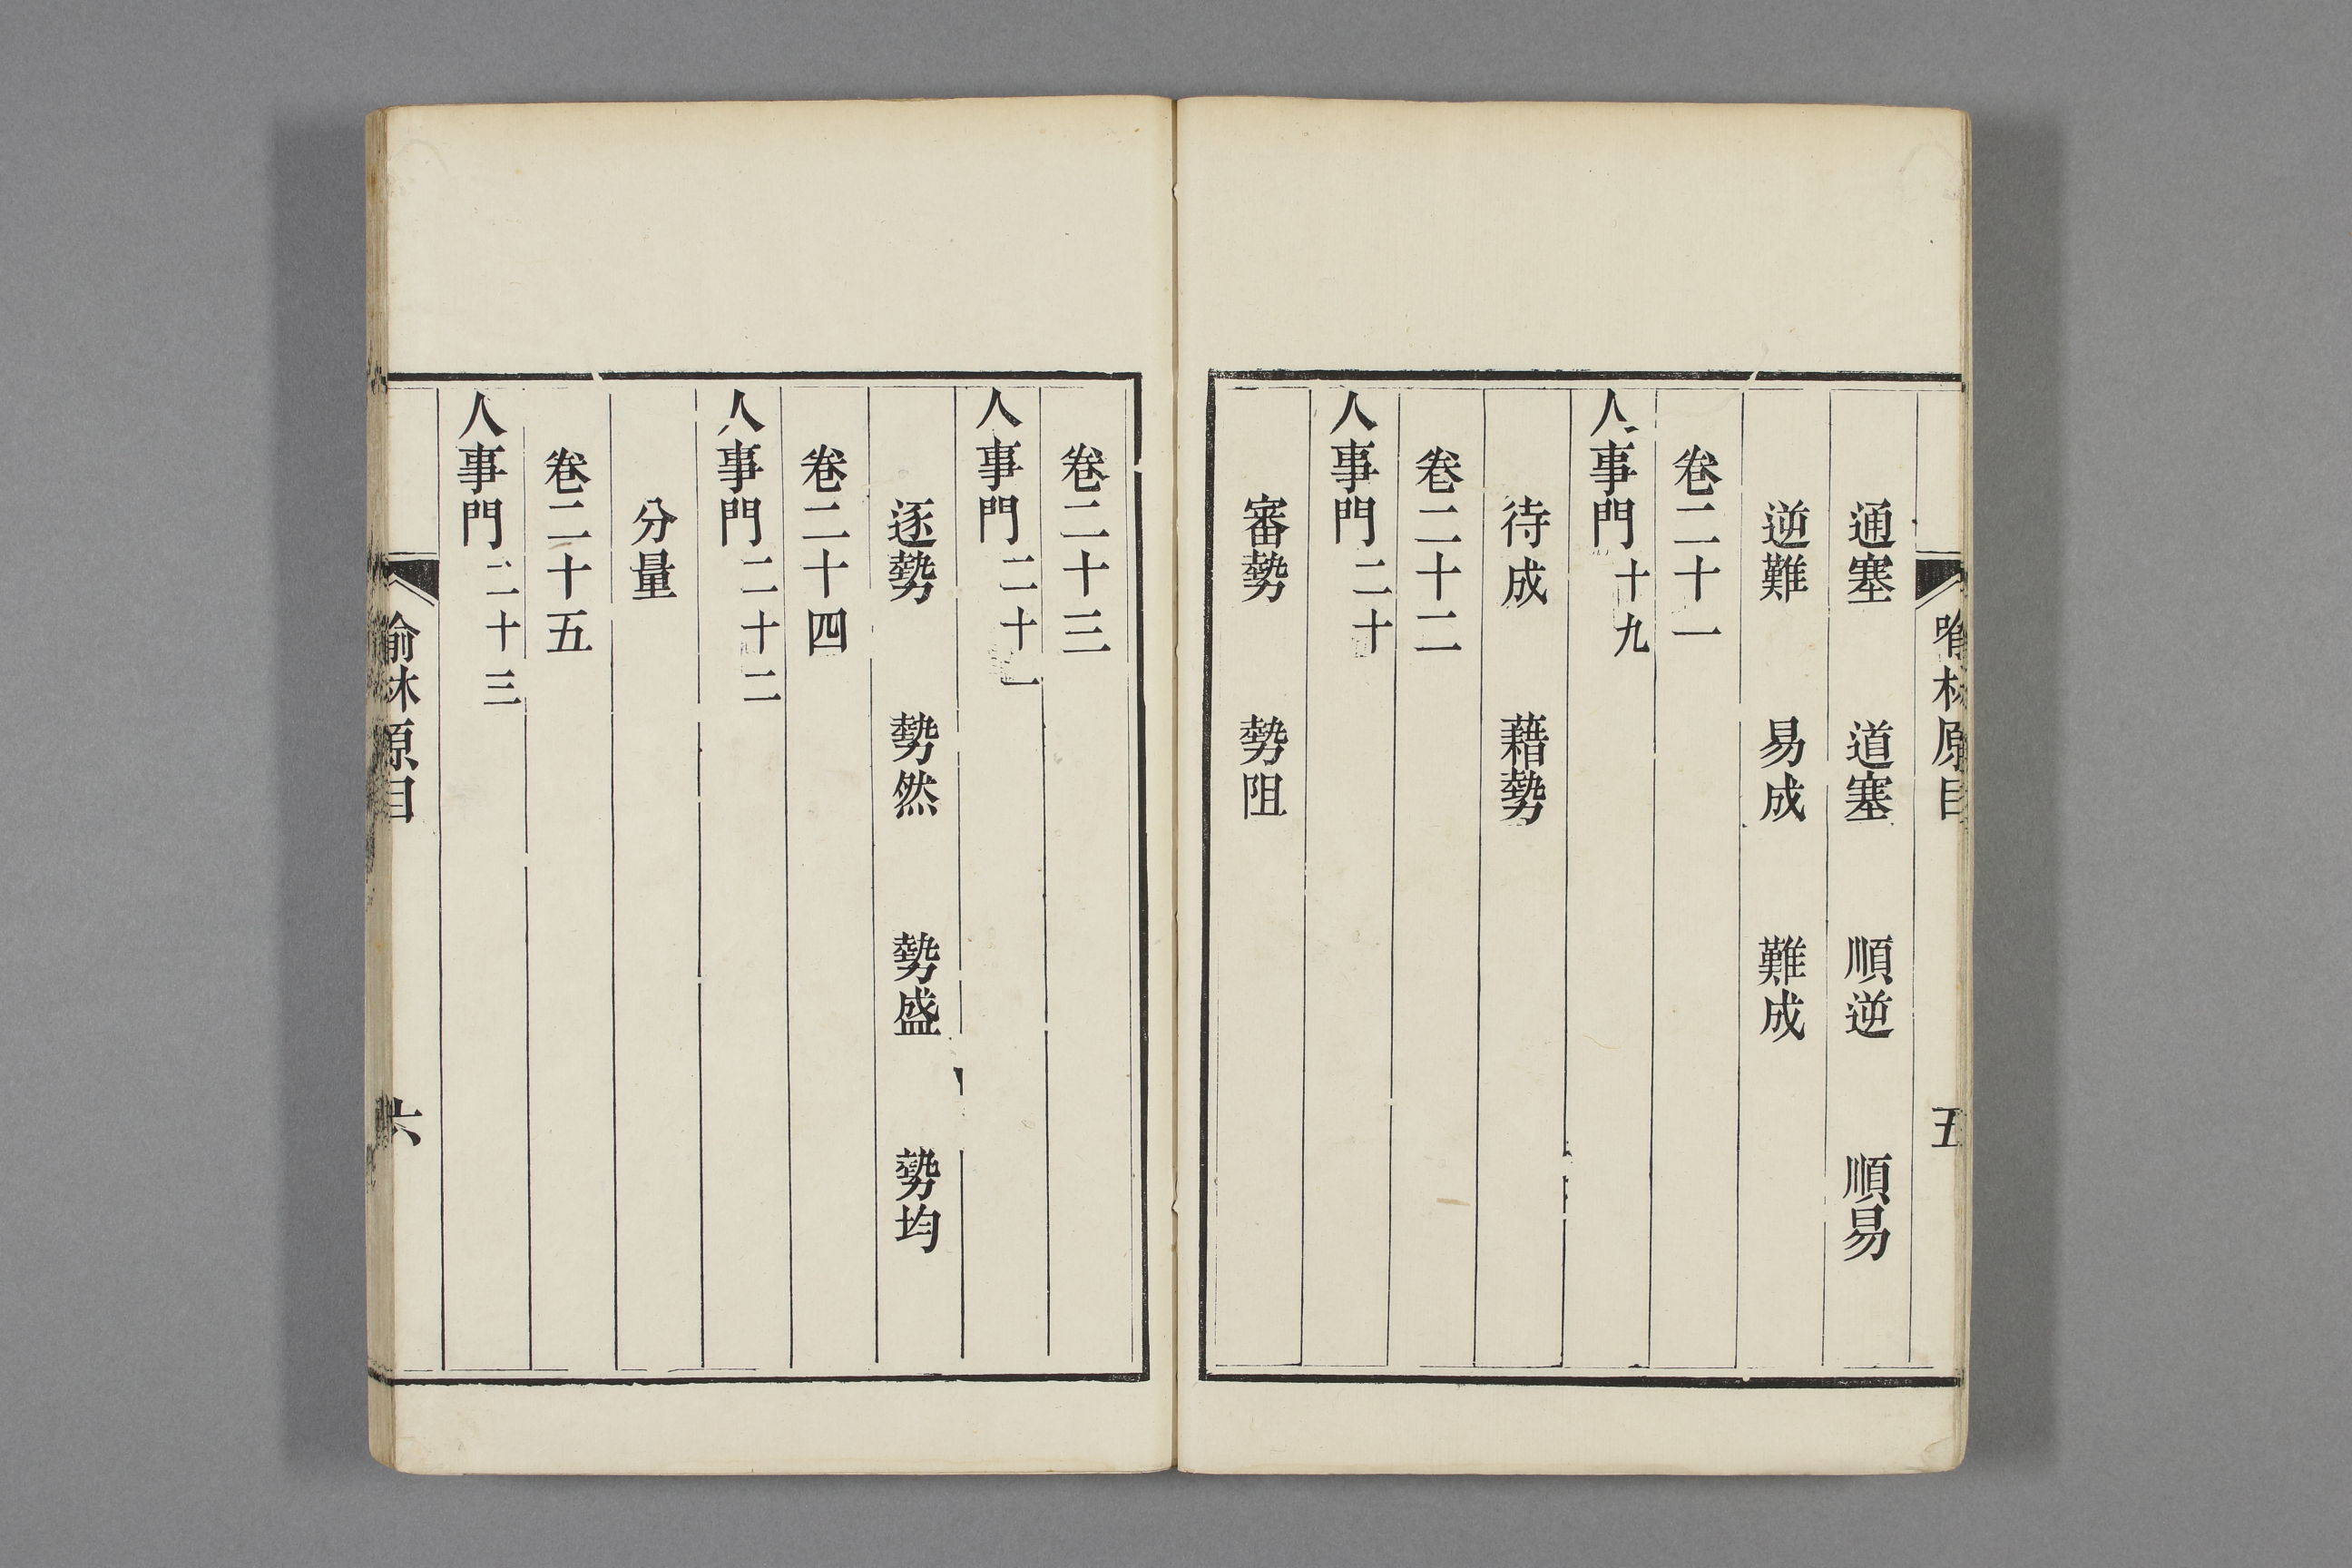 喻林原目
五
通塞　道塞　順逆　順易
逆難　易成　難成
卷二十一
人事門十九
待成　藉勢
卷二十二
人事門二十
審勢　勢阻
卷二十三
人事門二十一
逐勢　勢然　勢盛　勢均
卷二十四
人事門二十二
分量
卷二十五
人事門二十三
喻林原目
六